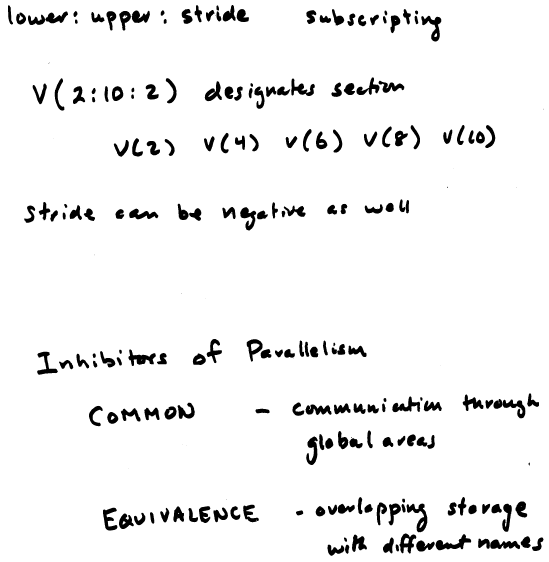 lower: upper: stride subscripting
V(2:10:2) designates section
V(2) V(4) V(6) V(8) V(10)
stride can be negative as well
Inhibitors of Parallelism
COMMON - communication through
global areas
EQUIVALENCE - overlapping storage
with different names